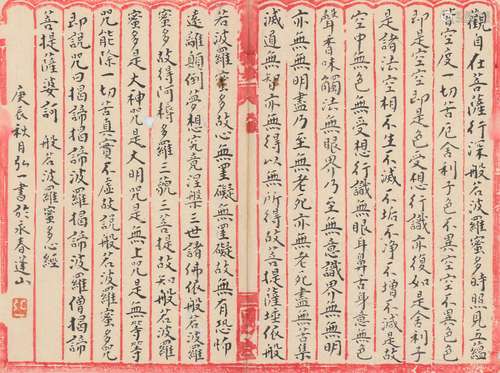 觀自在菩薩行深般若波羅蜜多時照見五蘊
皆空度一切苦厄舍利子色不異空空不異色色
即是空空即是色受想行識亦復如是舍利子
是諸法空相不生不滅不垢不淨不增不減是故
空中無色無受想行識無眼耳鼻舌身意無色
聲香味觸法無眼界乃至無意識界無無明
亦無無明盡乃至無老死亦無老死盡無苦集
滅道無智亦無得以無所得故菩提薩埵依般
若波羅蜜多故心無罣礙無罣礙故無有恐怖
遠離顛倒夢想究竟涅槃三世諸佛依般若波羅
蜜多故得阿耨多羅三藐三菩提故知般若波羅
蜜多是大神咒是大明咒是無上咒是無等等
咒能除一切苦真實不虛故說般若波羅蜜多咒
即說咒曰揭諦揭諦波羅揭諦波羅僧揭諦
菩提薩婆訶 般若波羅蜜多心經
庚辰秋月弘一書於永春蓬山